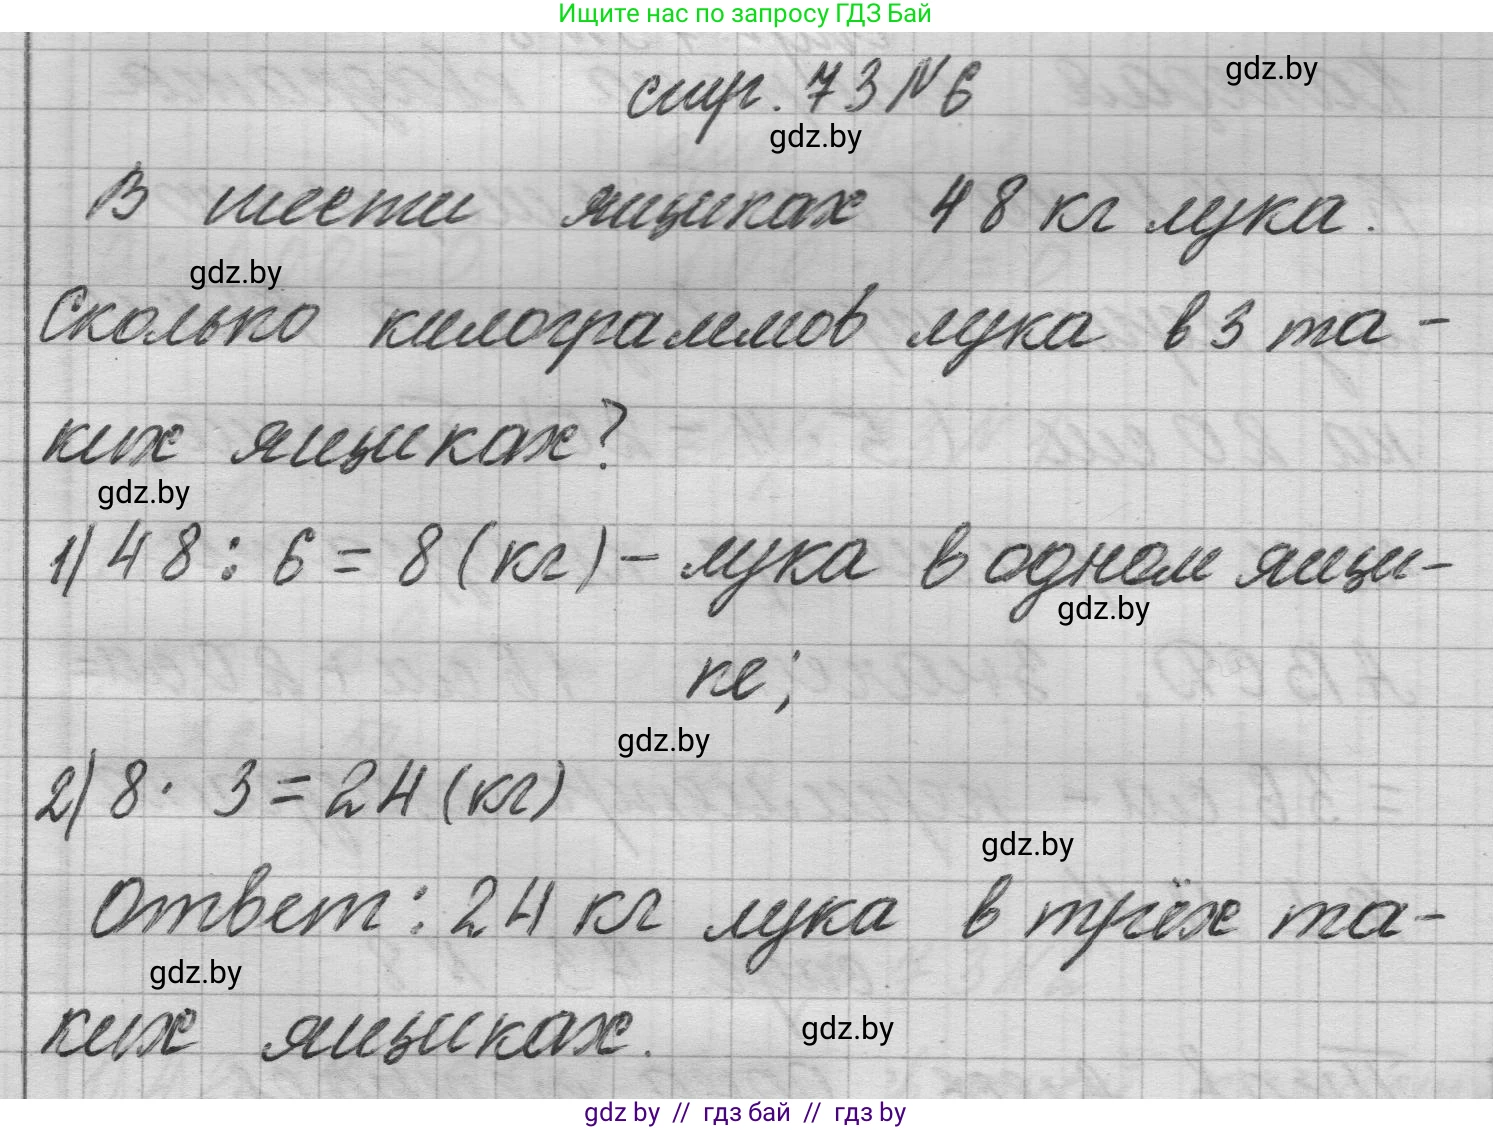 Ищите нас по запросу ГДЗ Бай
стр. 73 № 6
gdz.by
gdz.by
В шести ящиках 48 кг лука.
gdz.by
Сколько килограммов лука в 3 та-
ких ящиках?
gdz.by
1) 48 : 6 = 8 (кг) – лука в одном ящи-
gdz.by
ке;
gdz.by
2) 8 · 3 = 24 (кг)
gdz.by
Ответ: 24 кг лука в трёх та-
gdz.by
ких ящиках.
gdz.by
gdz by // гдз бай // гдз by